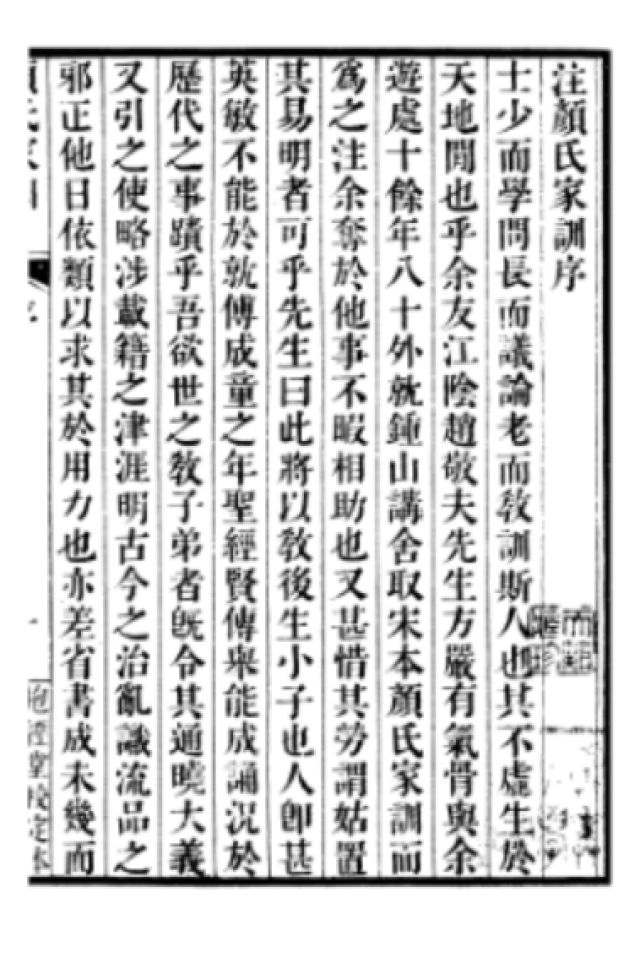 注顏氏家訓序
士少而學問長而議論老而敎訓斯人也其不虛生於
天地閒也乎余友江陰趙敬夫先生方嚴有氣骨與余
遊處十餘年八十外就鍾山講舍取宋本顏氏家訓而
爲之注余奪於他事不暇相助也又甚惜其勞謂姑置
其易明者可乎先生曰此將以敎後生小子也人卽甚
英敏不能於就傅成童之年聖經賢傳舉能成誦況於
歷代之事蹟乎吾欲世之敎子弟者旣令其通曉大義
又引之使略涉載籍之津涯明古今之治亂識流品之
邪正他日依類以求其於用力也亦差省書成未幾而
抱經堂校定本